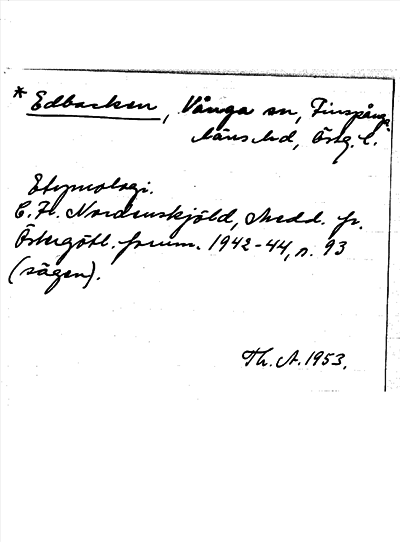 * Edbacken, Vånga sn, Finspånga
läns hd, Östg. l.
Etymologi.
C. F. Nordenskjöld, Medd. fr.
Östergötl. fornm. 1942-44, s. 93
(sägen).
Th. A. 1953.